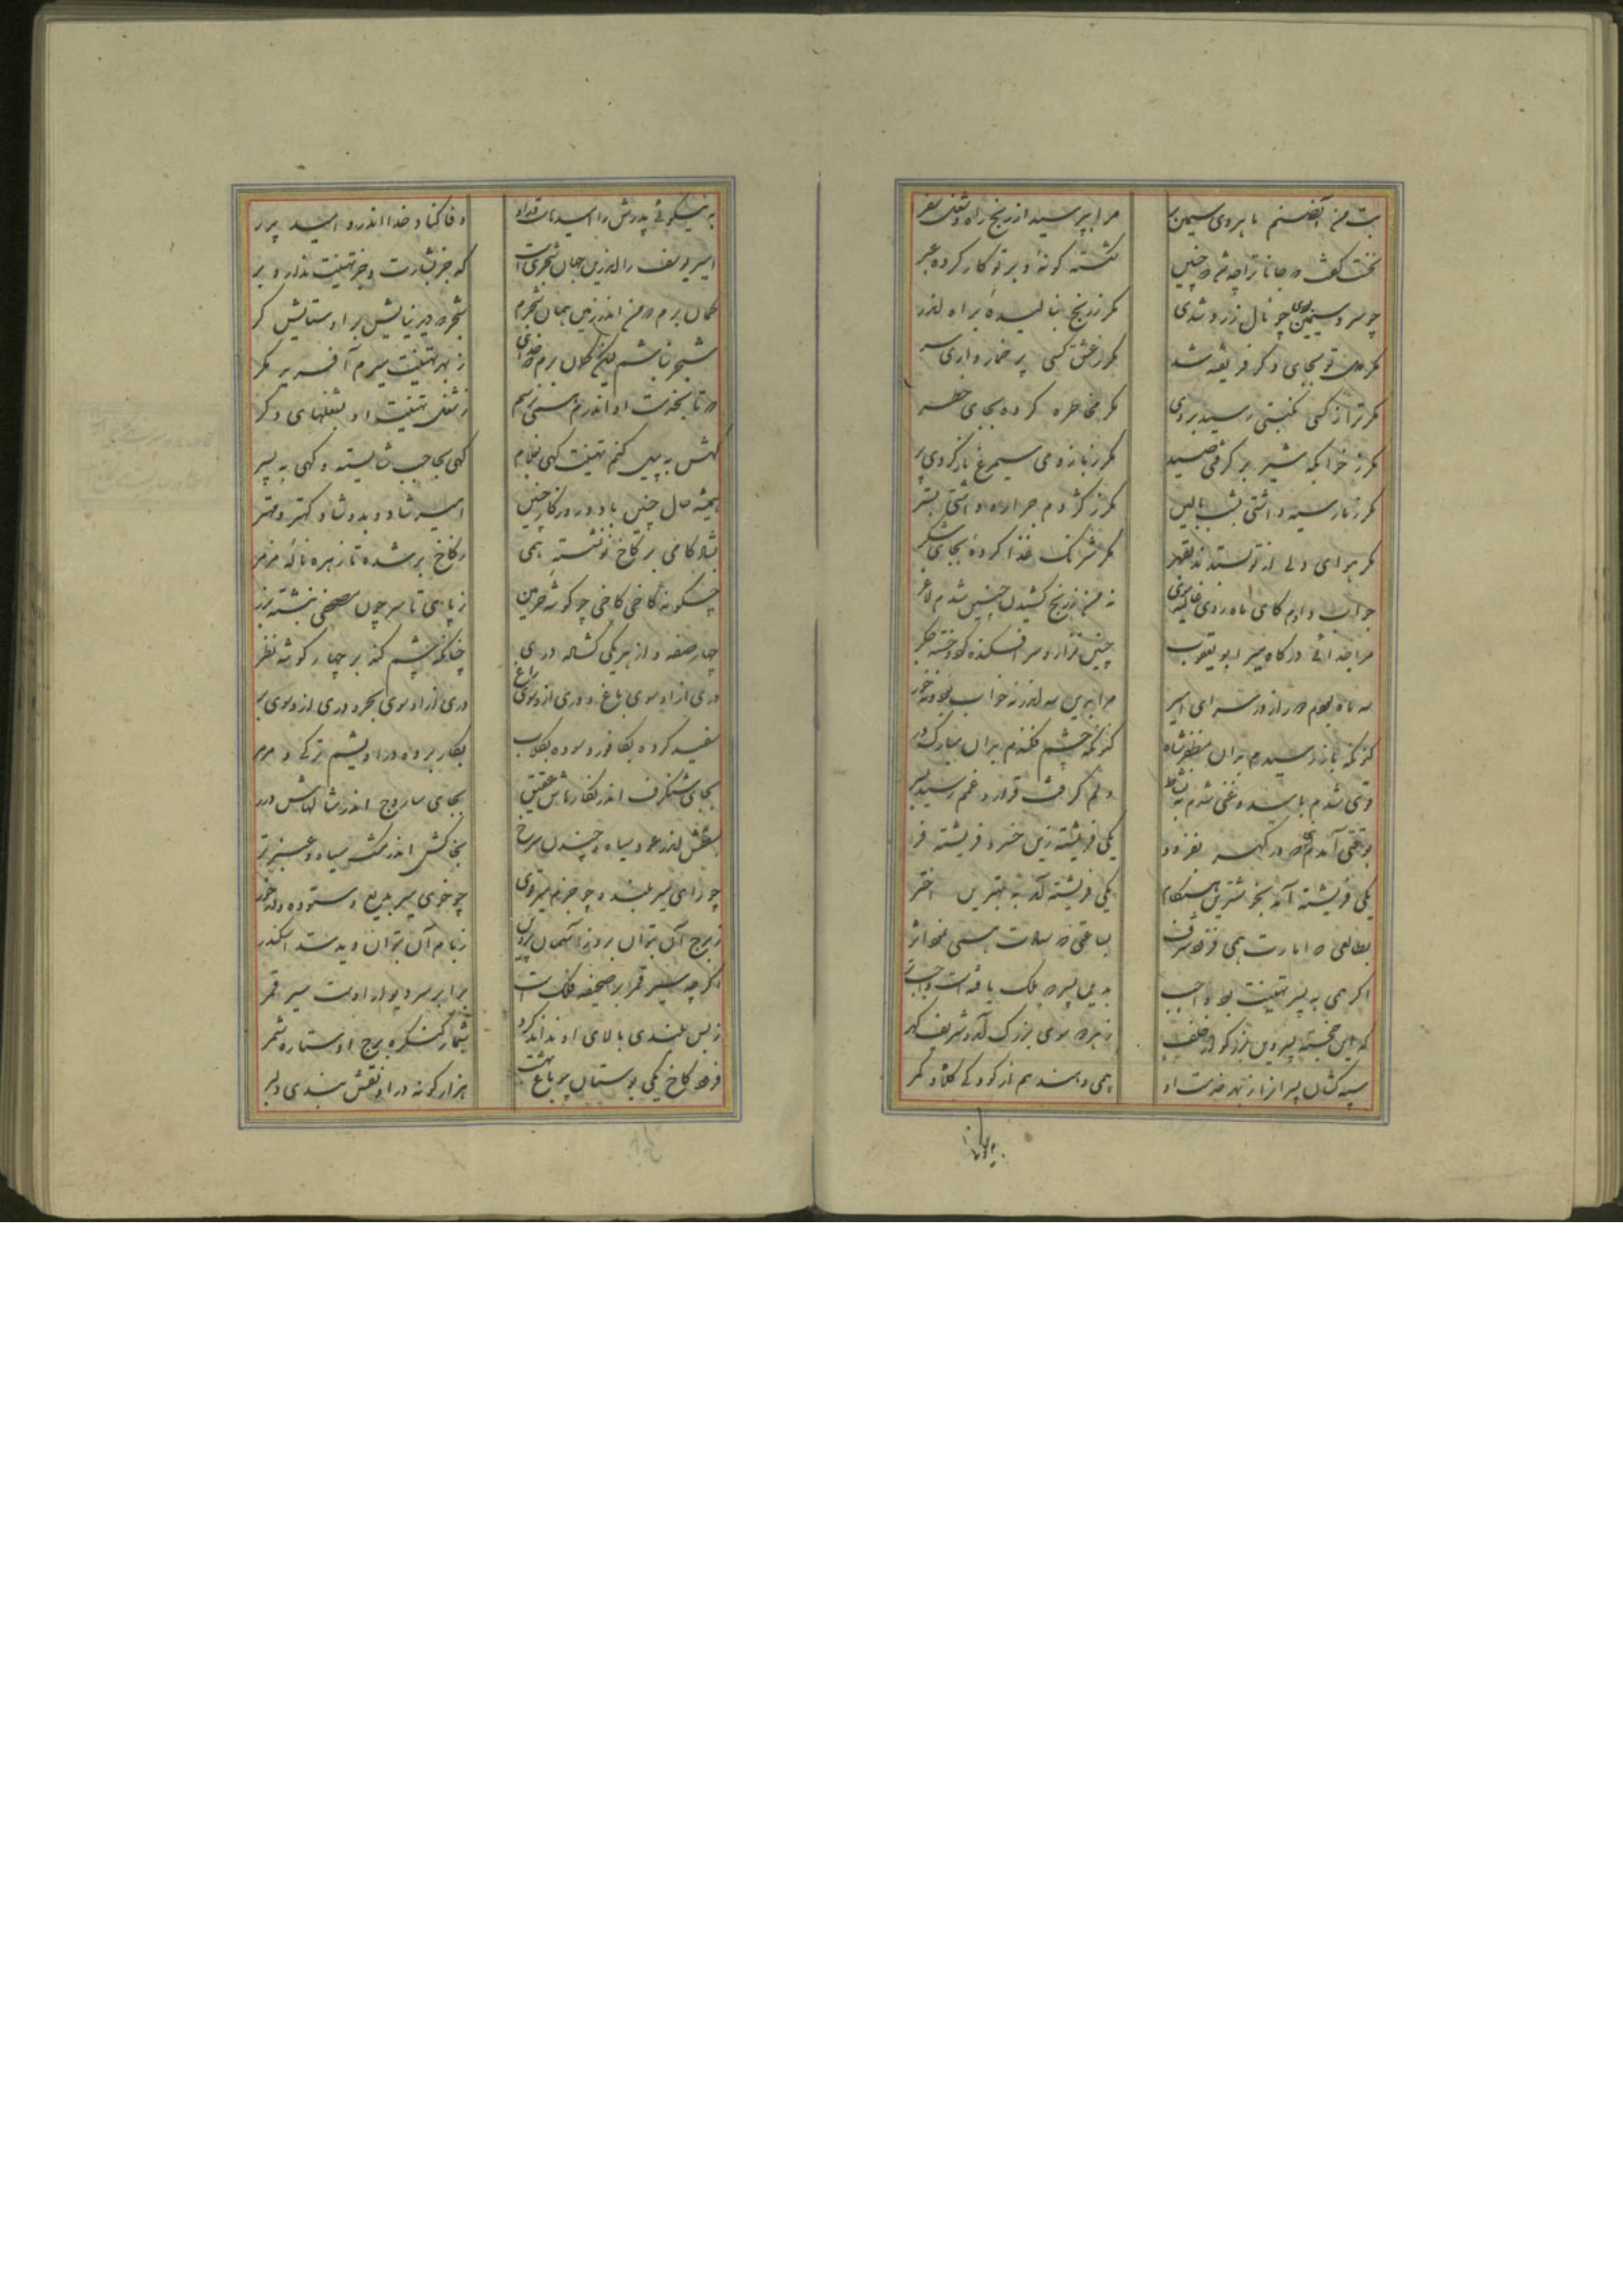 بت من آن صنم ماهروی سیمین بر
مرا بپرسید از رنج راه و شغل سفر
نخست گفت که جانا ترا چه شد که چنین
شکسته گونه و بر تو کار کرده عبر
چو سرو سیمین بودی چو نال زرد شدی
مگر ز رنج بنالیدهٔ براه اندر
مگر دلت بجای دگر فریفته شد
مگر ز عشق کسی پر خمار داری سر
مگر ترا ز کسی نکبتی رسید بروی
مگر مخاطره کرده بجای خطر
مگر ز خوابگه شیر بر گرفتی صید
مگر ز بازوی سیمرغ باز کردی پر
مگر ز مار سیه داشتی بشب بالین
مگر ز کژدم جراره داشتی بستر
مگر هوای دلی از تو بستدند بقهر
مگر شرنگ غذا کردهٔ بجای شکر
جواب دادم کای ماه روی غالیه موی
نه من ز رنج کشیدن چنین شدم لاغر
مرا جدائی درگاه میر ابو یعقوب
چنین نزار و سر افکنده کرد و خسته جگر
سه ماه بودم دور از در سرای امیر
مرا بدین سه اندر نه خواب بود و نه خور
کنون که باز رسیدم بدان مظفر شاه
کنون که چشم فکندم بدان مبارک در
قوی شدم بامید و غنی شدم بنشاط
دلم گرفت قرار و غمم رسید بسر
بوقتی آمدم که در گهر بفزود
یکی فریشته زین خسرو فریشته فر
یکی فریشته آمد بخوشترین هنگام
یکی فریشته آمد به بهترین اختر
بطالعی که امارت همی فزود شرف
بساعتی که سعادت همی نمود اثر
اگر همی به پسر تهنیت بود واجب
بدین پسر که ملک یافتست واجبتر
که این خجسته پسر وین بزرگوار خلف
ز بهر سوی بزرگ آمد و شریف گهر
سپه کشان پسر از بهر خدمت او
همی دهند هم از کودکی کلاه و کمر
به نیکوئی پدرش را امید هاست در او
وفا کناد خدا اندر و امید پدر
امیر یوسف را اندرین جهان شجریست
که جز بشارت و جز تهنیت ندارد بر
گمان برم که من اندر زمین همان شجرم
شجر که دید نیایش بر او ستایش گر
شجر نباشم لیکن گمان برم که خدای
ز بهر تهنیت میرم آفرید مگر
که تا بخدمت او اندرم همی نرسم
ز شغل تهنیت او بشغلهای دگر
گهش به پیل کنم تهنیت گهی بغلام
گهی بحاجب شایسته و گهی به پسر
همیشه حال چنین باد و روزگار چنین
امیر شاد و بدو شاد کهتر و مهتر
بشاد کامی بر کاخ نو نشسته همی
ز کاخ بر شده تا زهره نالهٔ مزمر
چگونه کاخی کاخی چو گوشهٔ فردوس
ز پای تا سر چون مصحفی نبشته بزر
چهار صفه و از هر یکی گشاده دری
چنانکه چشم کند بر چهار گوشه نظر
دری از او سوی باغ و دری از او سوی راغ
دری از او سوی بحر و دری از او سوی بر
سفید کرده بکافور سوده بگلاب
بکار برده در او یشم ترکی و مرمر
بجای شنگرف اندر نگارهاش عقیق
بجای ساروج اندر شالهاش درر
سقفش اندر عود سیاه و چندل سرخ
بخاکش اندر مشک سیاه و عنبر تر
چو رای میر بلند و چو حزم میر قوی
چو خوی میر بدیع و ستوده و اندر خور
ز برج آن بتوان برد ز آسمان پروین
ز بام آن بتوان دید سد اسکندر
اگرچه مسیر قمر بر صحیفه فلک است
برابر سر دیوار اوست سیر قمر
ز بس بلندی بالای او نداند کرد
شمار کنگره برج او ستاره شمر
فرود کاخ یکی بوستان چو باغ بهشت
هزار گونه در او نقش بندی دلبر